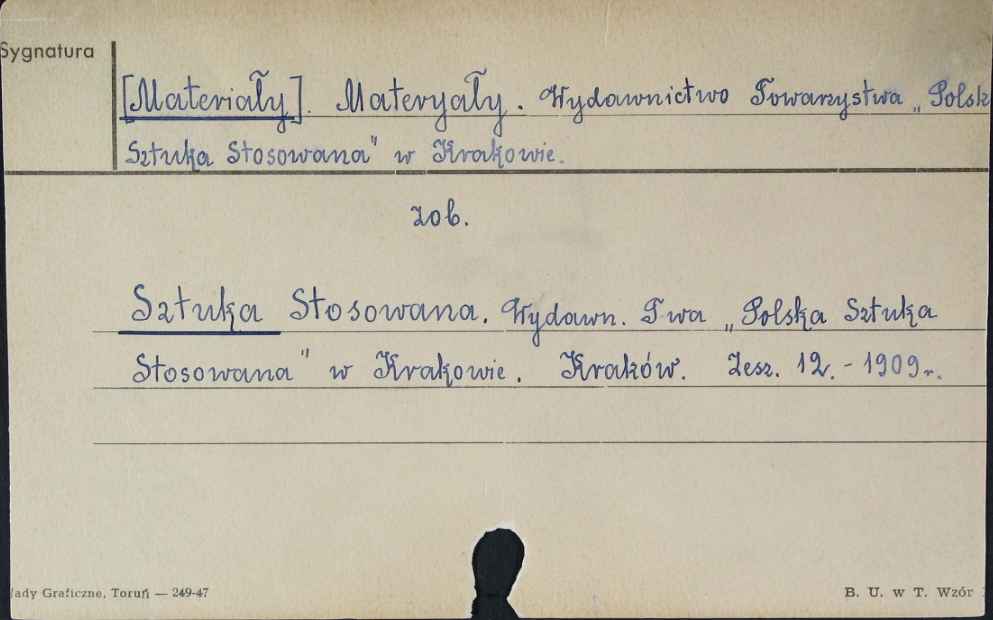 Sygnatura
[Materiały]. Materyały. Wydawnictwo Towarzystwa „Polsk
Sztuka Stosowana" w Krakowie.
zob.
Sztuka Stosowana. Wydawn. T-wa „Polska Sztuka
Stosowana" w Krakowie. Kraków. Zesz. 12. - 1909r.
łady Graficzne, Toruń — 249-47
B. U. w T. Wzór